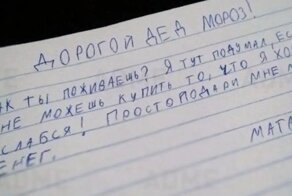 ДОРОГОЙ ДЕД МОРОЗ!
АК ТЫ ПОЖИВАЕШЬ? Я ТУТ ПОДУМАЛ, ЕС
НЕ МОЖЕШЬ КУПИТЬ ТО, ЧТО Я ХО
СЛАБСЯ! ПРОСТО ПОДАРИ МНЕ М
ЕНЕГ.
МАТВ